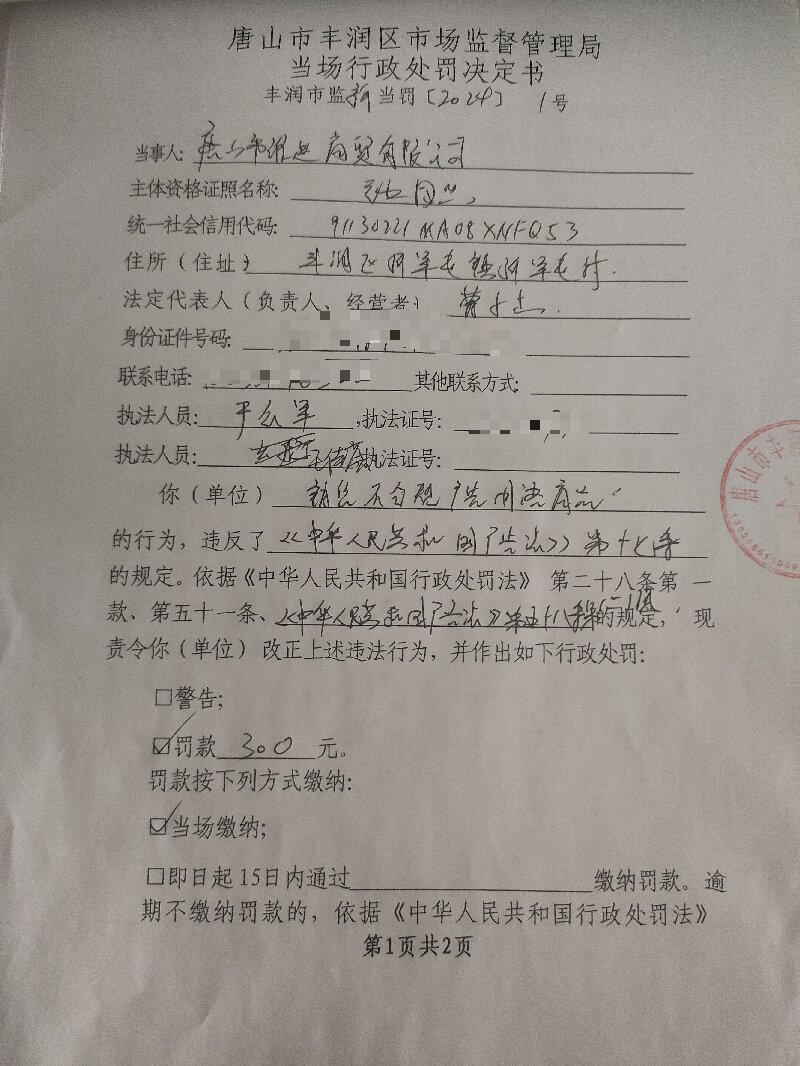 唐山市丰润区市场监督管理局
当场行政处罚决定书
丰润市监新当罚〔2024〕1号
当事人: 唐山市 商贸有限公司
主体资格证照名称:
统一社会信用代码: 91130221MA08XNFQ53
住所（住址） 丰润区
法定代表人（负责人、经营者）
身份证件号码:
联系电话: 其他联系方式:
执法人员: 于众军 ,执法证号:
执法人员: 执法证号:
你（单位） 销售不合规广告用语商品
的行为，违反了《中华人民共和国广告法》第十七条
的规定。依据《中华人民共和国行政处罚法》 第二十八条第 一
款、第五十一条、《中华人民共和国广告法》第五十八条 的规定， 现
责令你（单位）改正上述违法行为，并作出如下行政处罚:
□警告;
☑罚款 300 元。
罚款按下列方式缴纳:
☑当场缴纳;
□即日起15日内通过 缴纳罚款。逾
期不缴纳罚款的，依据《中华人民共和国行政处罚法》
第1页共2页
唐山市丰